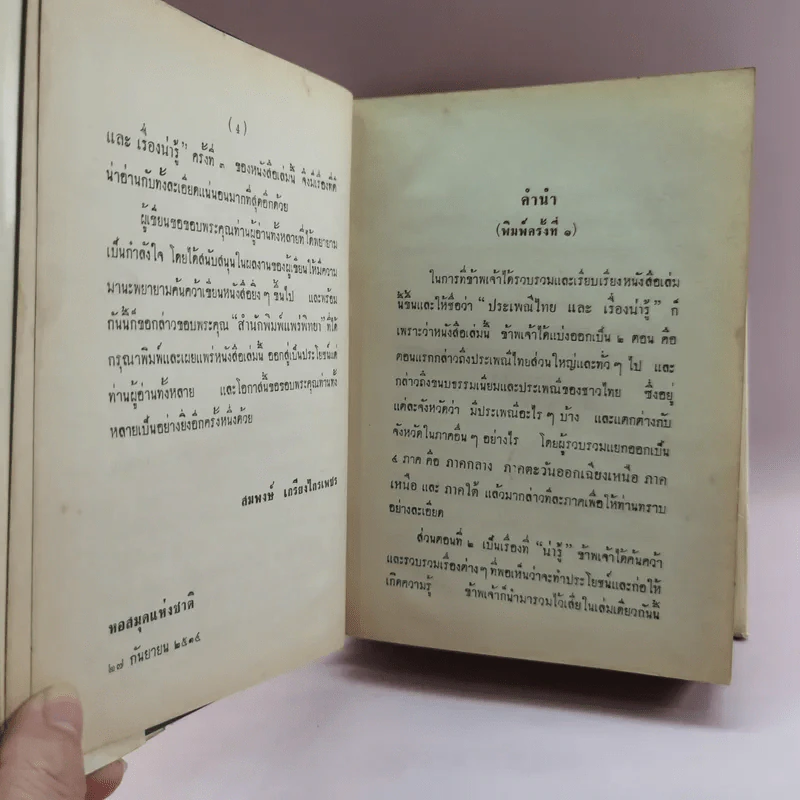 (๔)
และ เรื่องน่ารู้” ครั้งที่ ๓ ของหนังสือเล่มนี้ จึงมีเรื่องที่ดี
น่าอ่านกับทั้งละเอียดแน่นอนมากที่สุดอีกด้วย
ผู้เขียนขอขอบพระคุณท่านผู้อ่านทั้งหลายที่ได้พยายาม
เป็นกำลังใจ โดยได้สนับสนุนในผลงานของผู้เขียนให้มีความ
มานะพยายามค้นคว้าเขียนหนังสือยิ่ง ๆ ขึ้นไป และพร้อม
กันนี้ก็ขอกล่าวขอบพระคุณ “สำนักพิมพ์แพร่พิทยา” ที่ได้
กรุณาพิมพ์และเผยแพร่หนังสือเล่มนี้ ออกสู่เป็นประโยชน์แด่
ท่านผู้อ่านทั้งหลาย และโอกาสนี้ขอขอบพระคุณท่านทั้ง
หลายเป็นอย่างยิ่งอีกครั้งหนึ่งด้วย
สมพงษ์ เกรียงไกรเพชร
หอสมุดแห่งชาติ
๒๗ กันยายน ๒๕๑๔
คำนำ
(พิมพ์ครั้งที่ ๑)
ในการที่ข้าพเจ้าได้รวบรวมและเรียบเรียงหนังสือเล่ม
นี้ขึ้นและให้ชื่อว่า “ประเพณีไทย และ เรื่องน่ารู้” ก็
เพราะว่าหนังสือเล่มนี้ ข้าพเจ้าได้แบ่งออกเป็น ๒ ตอน คือ
ตอนแรกกล่าวถึงประเพณีไทยส่วนใหญ่และทั่ว ๆ ไป และ
กล่าวถึงขนบธรรมเนียมและประเพณีของชาวไทย ซึ่งอยู่
แต่ละจังหวัดว่า มีประเพณีอะไร ๆ บ้าง และแตกต่างกับ
จังหวัดในภาคอื่น ๆ อย่างไร โดยผู้รวบรวมแยกออกเป็น
๔ ภาค คือ ภาคกลาง ภาคตะวันออกเฉียงเหนือ ภาค
เหนือ และ ภาคใต้ แล้วมากล่าวทีละภาคเพื่อให้ท่านทราบ
อย่างละเอียด
ส่วนตอนที่ ๒ เป็นเรื่องที่ “น่ารู้” ข้าพเจ้าได้ค้นคว้า
และรวบรวมเรื่องต่าง ๆ ที่พอเห็นว่าจะทำประโยชน์และก่อให้
เกิดความรู้ ข้าพเจ้าก็นำมารวมไว้เสียในเล่มเดียวกันนี้